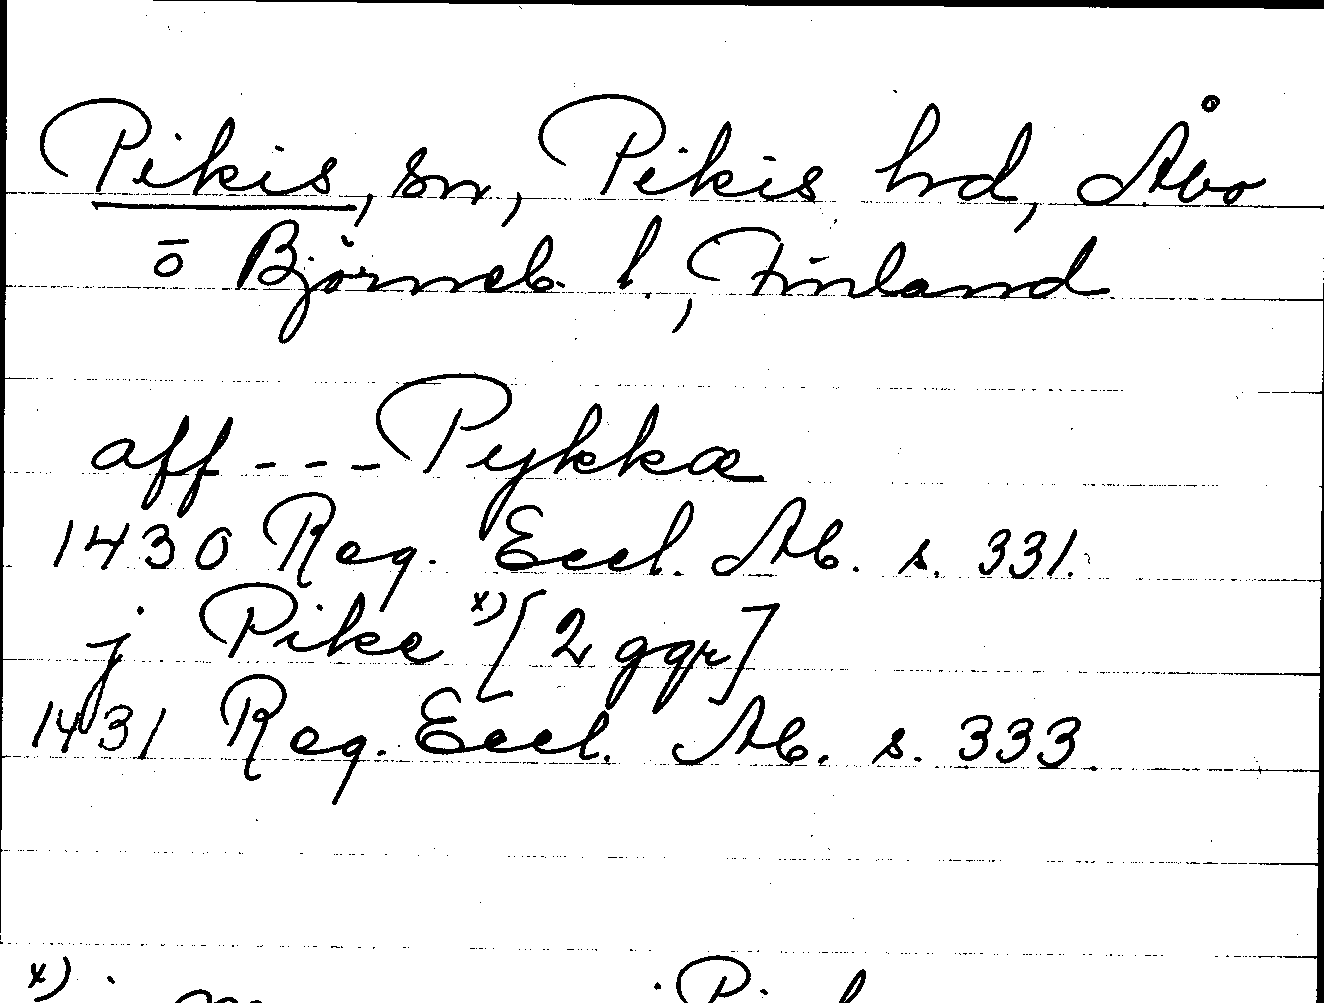 Pikis, sn, Pikis hd, Åbo
ō Björneb. l., Finland
aff --- Pykkæ
1430 Reg. Eccl. Ab. s. 331.
j Pike x) [2 ggr]
1431 Reg. Eccl. Ab. s. 333.
x) j